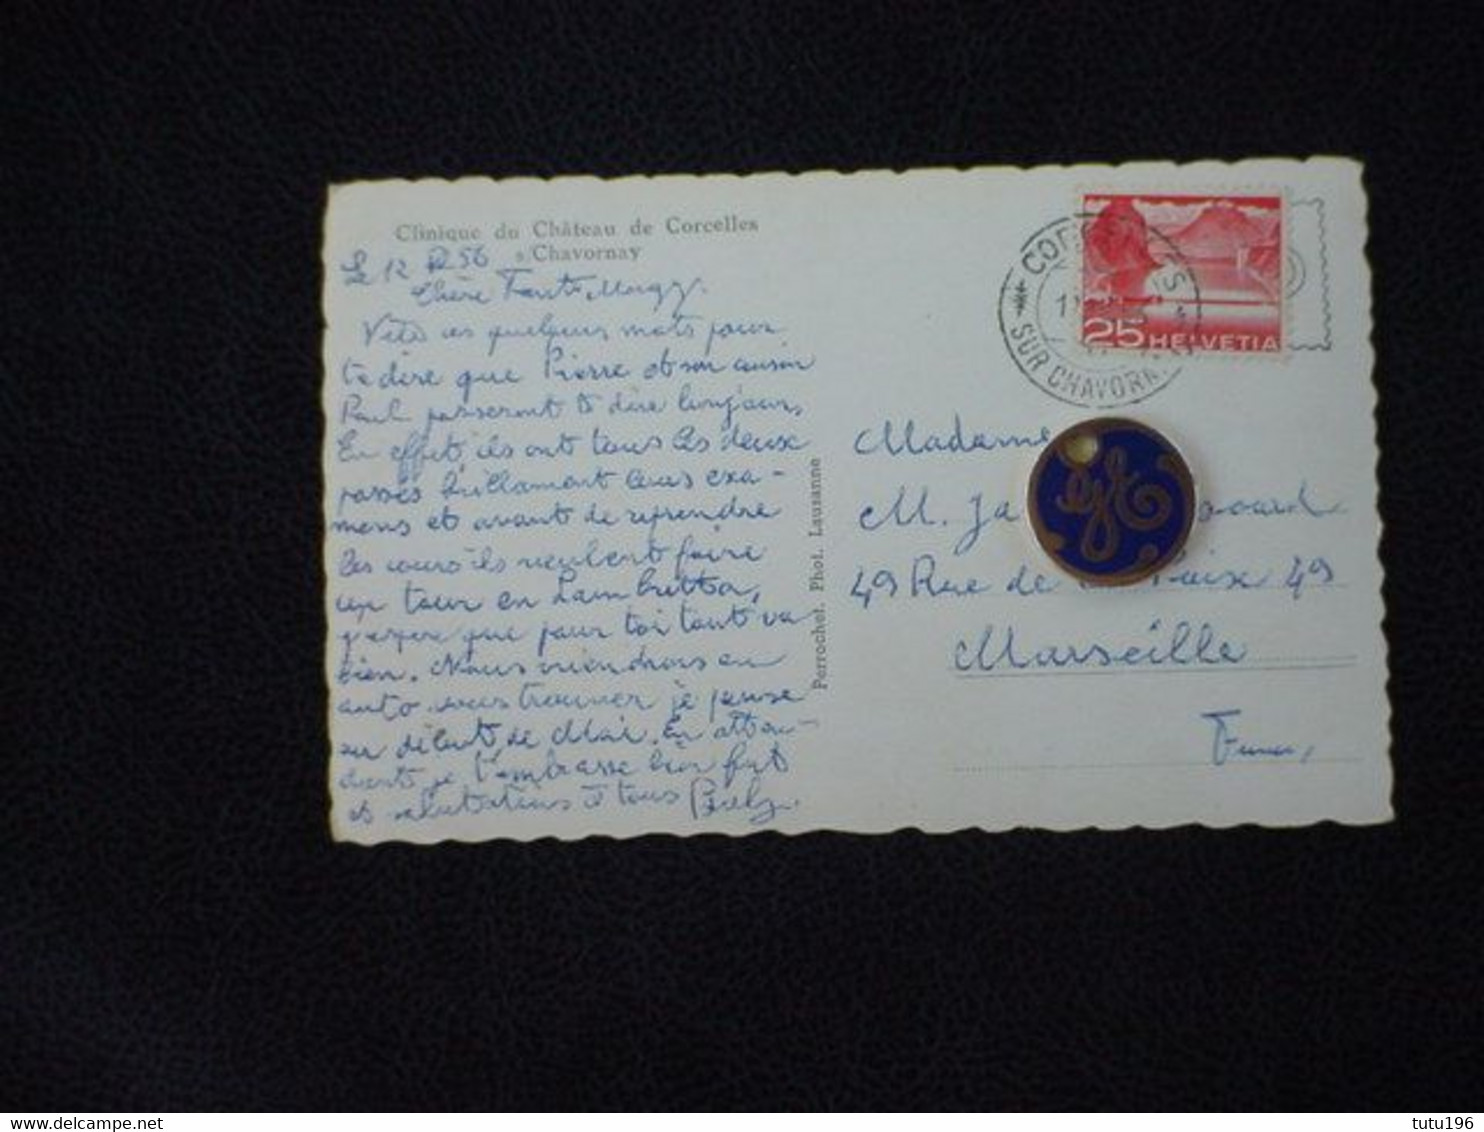 Clinique du Château de Corcelles
s/Chavornay
Le 12 56
Chère Tante Maggy.
Vite ces quelques mots pour
te dire que Pierre et son cousin
Paul passeront te dire bonjour,
En effet ils ont tous les deux
passés brillamant leurs exa-
mens et avant de reprendre
les cours ils veulent faire
un tour en Lambretta,
j'espère que pour toi tout va
bien. Nous viendrons en
auto vous trouver je pense
au début de Mai. En atten-
dant je t'embrasse bien fort
et salutations à tous
Perrochet. Phot. Lausanne
CORCELLES
SUR CHAVORN
25 HELVETIA
Madame
M. Ja
49 Rue de Paix 49
Marseille
France
tutu196